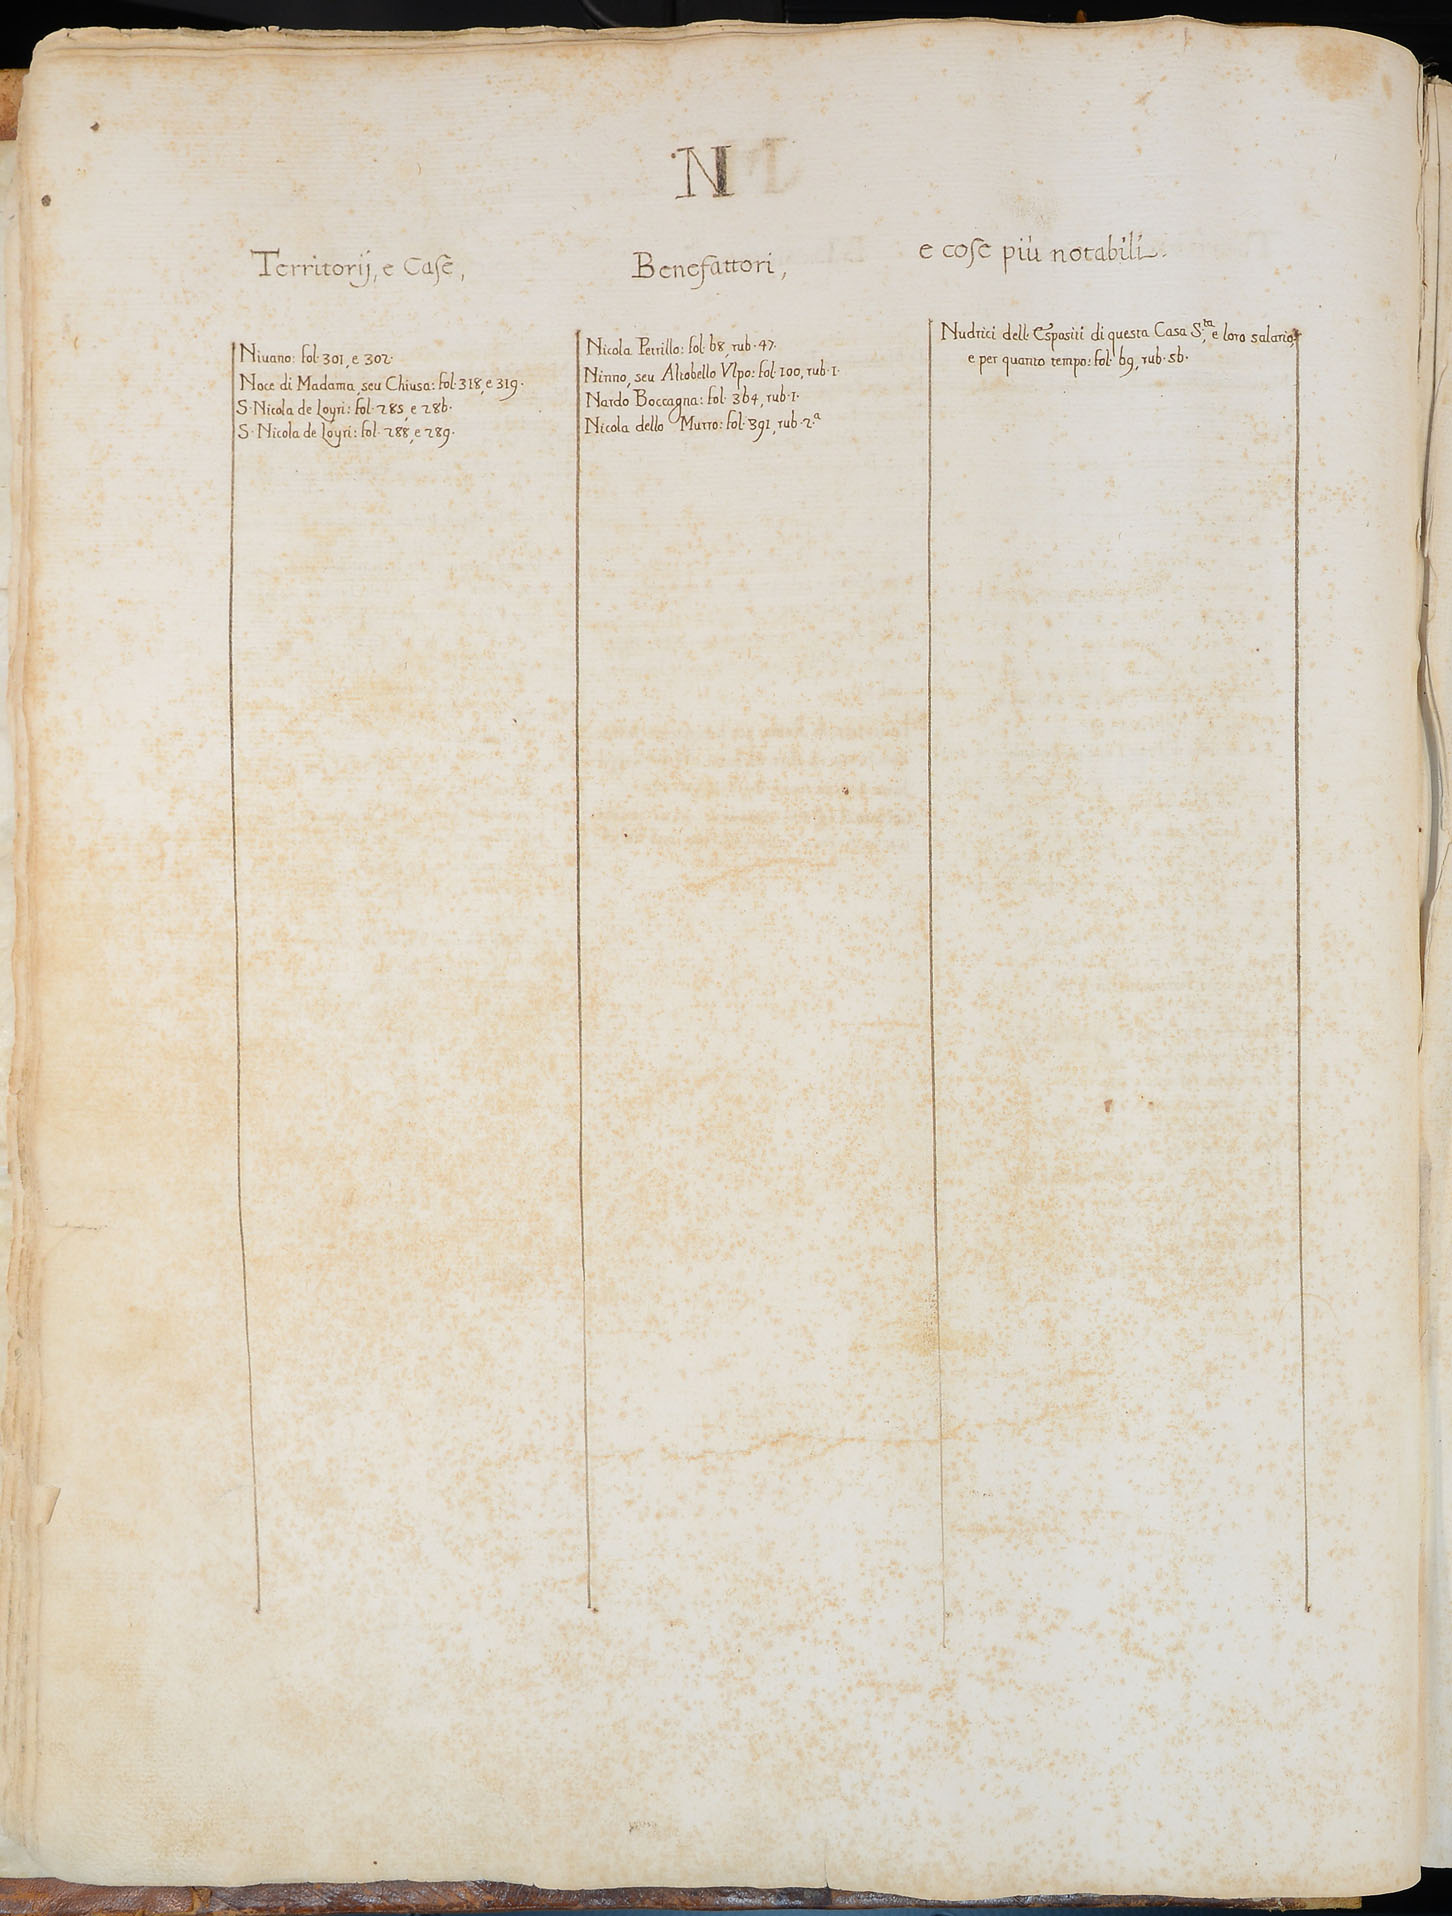 N
Territorij, e Case,
Benefattori,
e cose più notabili.
Niuano: fol. 301, e 302.
Noce di Madama, seu Chiusa: fol. 318, e 319.
S. Nicola de Loyri: fol. 285, e 286.
S. Nicola de Loyri: fol. 288, e 289.
Nicola Petrillo: fol. 68, rub. 47.
Ninno, seu Altobello Vlpo: fol. 100, rub. 1.
Nardo Boccagna: fol. 364, rub. 1.
Nicola dello Mutro: fol. 391, rub. 2.a
Nudrici dell. Espositi di questa Casa S.ta, e loro salario,
e per quanto tempo: fol. 69, rub. 56.